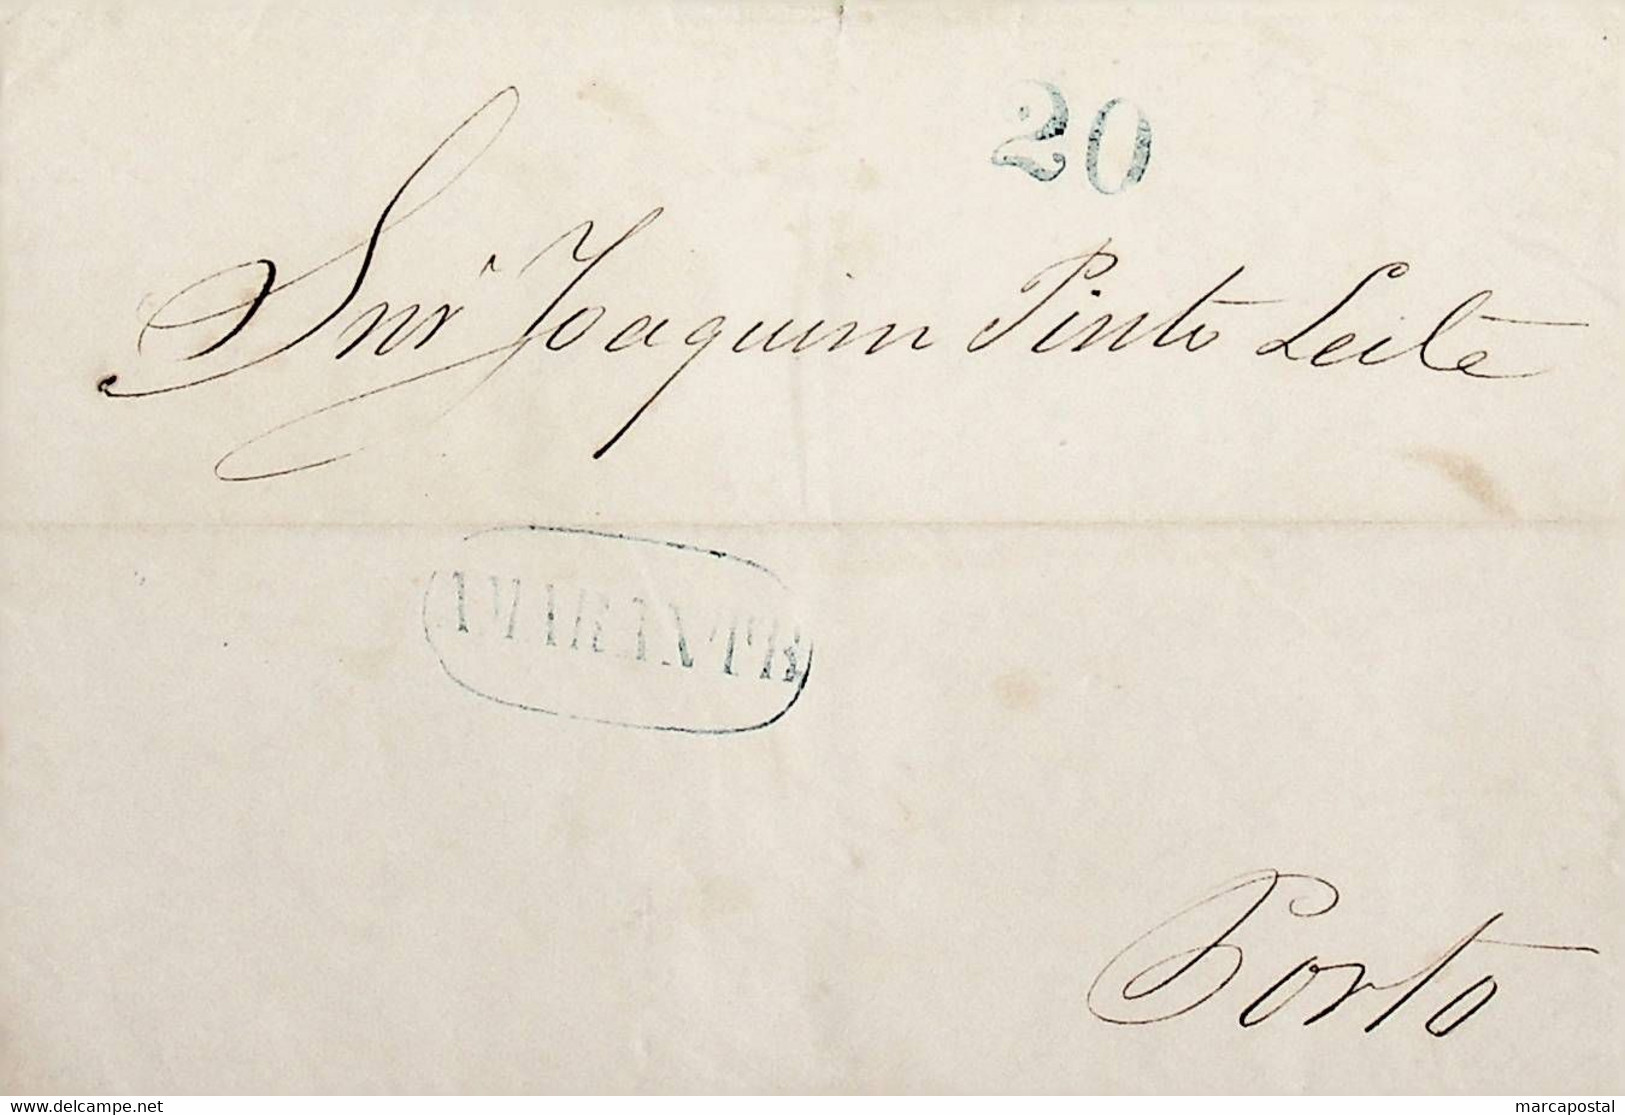 20
Snr Joaquim Pinto Leite
AMARANTE
Porto
www.delcampe.net
marcapostal